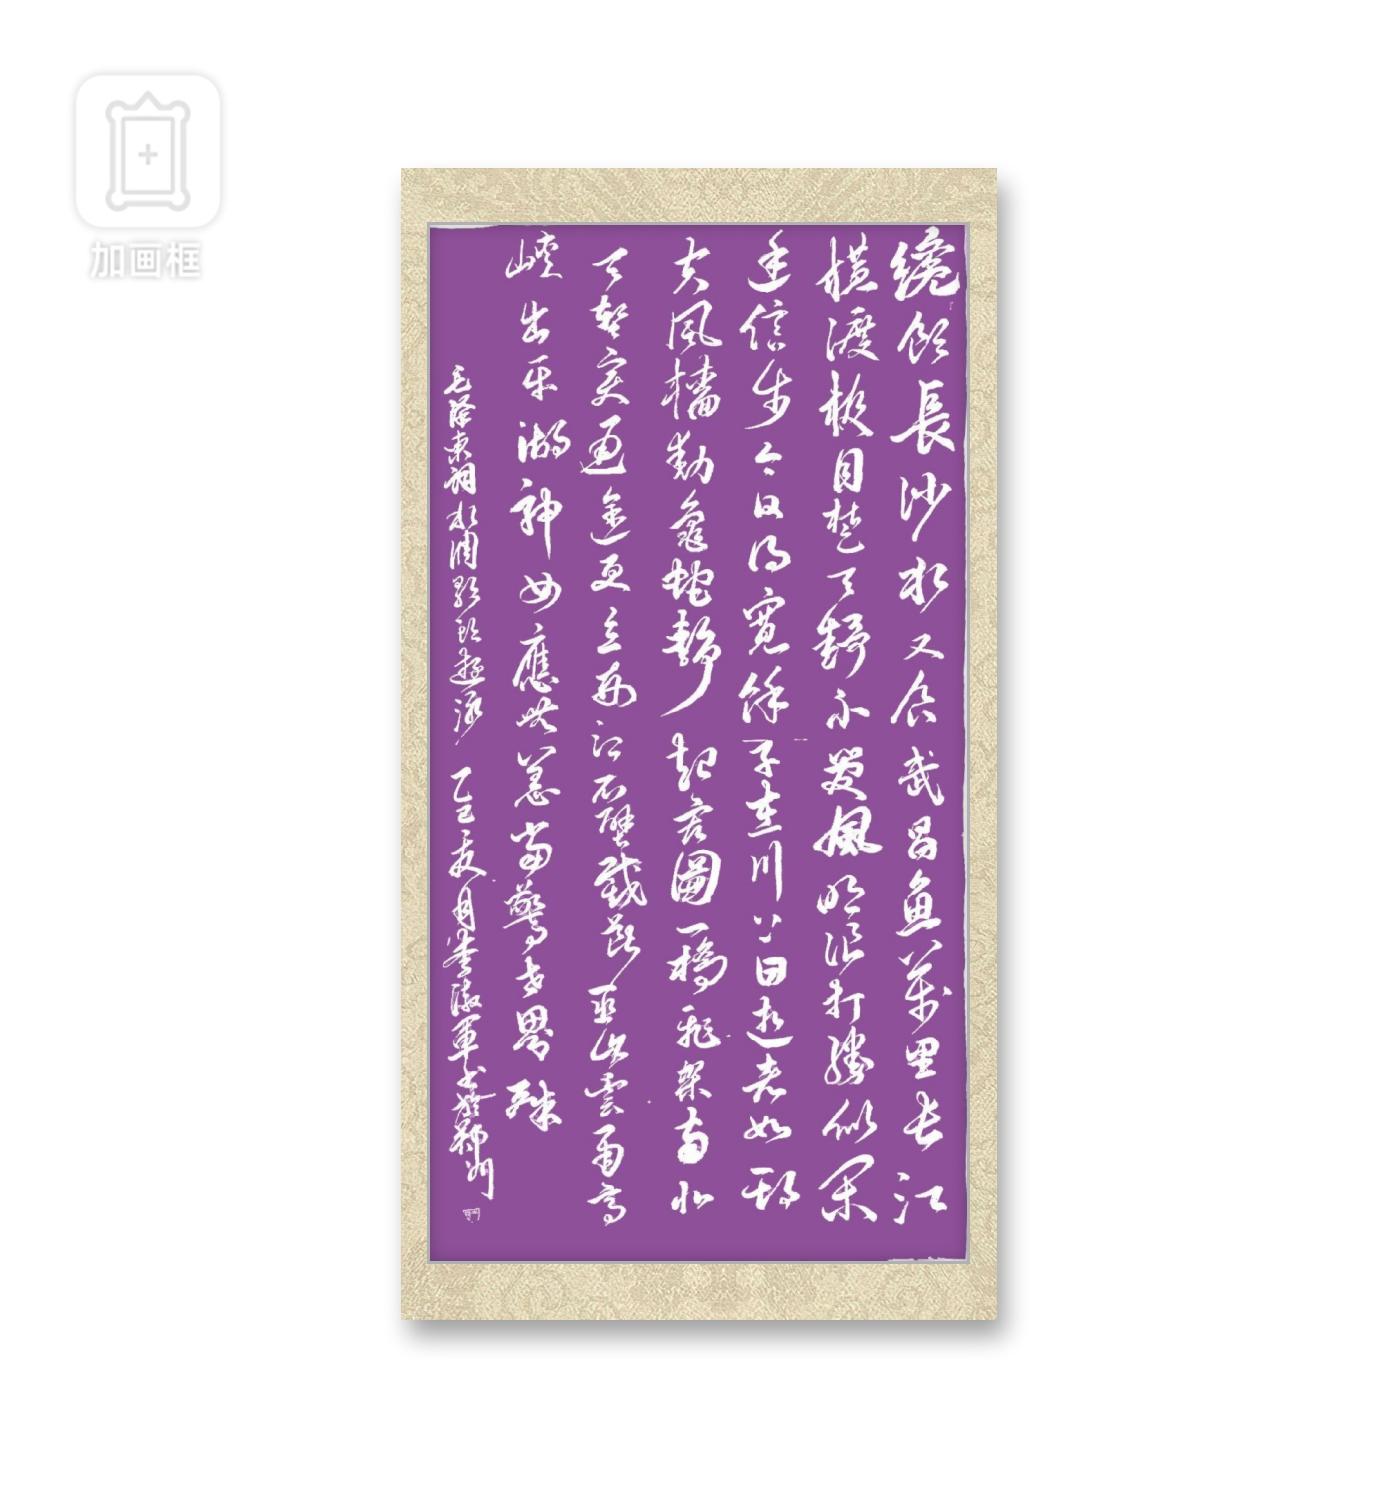 加画框
纔飲長沙水又食武昌魚萬里長江
橫渡極目楚天舒不管風吹浪打勝似閑
庭信步今日得寬餘子在川上曰逝者如斯
夫風檣動龜蛇靜起宏圖一橋飛架南北
天塹變通途更立西江石壁截斷巫山雲雨高
峽出平湖神女應無恙當驚世界殊
毛澤東詞水調歌頭遊泳 乙巳夏月李軍書於鄭州